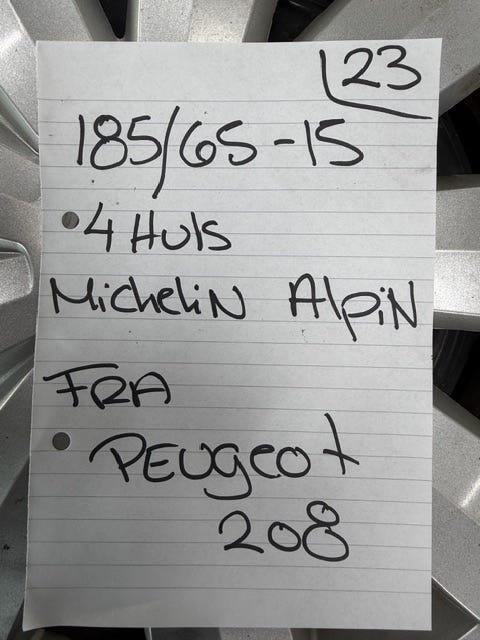 23
185/65-15
4 Huls
Michelin Alpin
FRA
PEUgeot
208